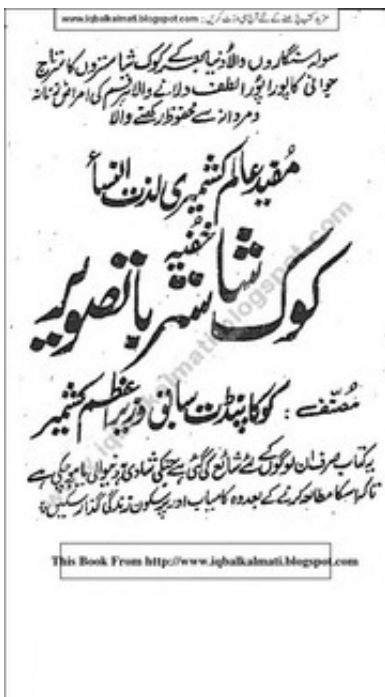 مزید کتب پڑھنے کے لئے آج ہی وزٹ کریں : www.iqbalkalmati.blogspot.com
سولہ سنگاروں والا دنیا بھر کے کوک شاستروں کا سرتاج
جوانی کا پورا پورا لطف دلانے والا ہر قسم کی امراض زنانہ
و مردانہ سے محفوظ رکھنے والا
مفید عالم کشمیری لذت النساء
خفیہ
کوک شاستر با تصویر
مصنف : کوکا پنڈت سابق وزیر اعظم کشمیر
یہ کتاب صرف ان لوگوں کے لئے شائع کی گئی ہے جنکی شادی ہونیوالی یا ہو چکی ہے
تاکہ اسکا مطالعہ کرنے کے بعد وہ کامیاب اور پرسکون زندگی گذار سکیں
www.iqbalkalmati.blogspot.com
This Book From http://www.iqbalkalmati.blogspot.com